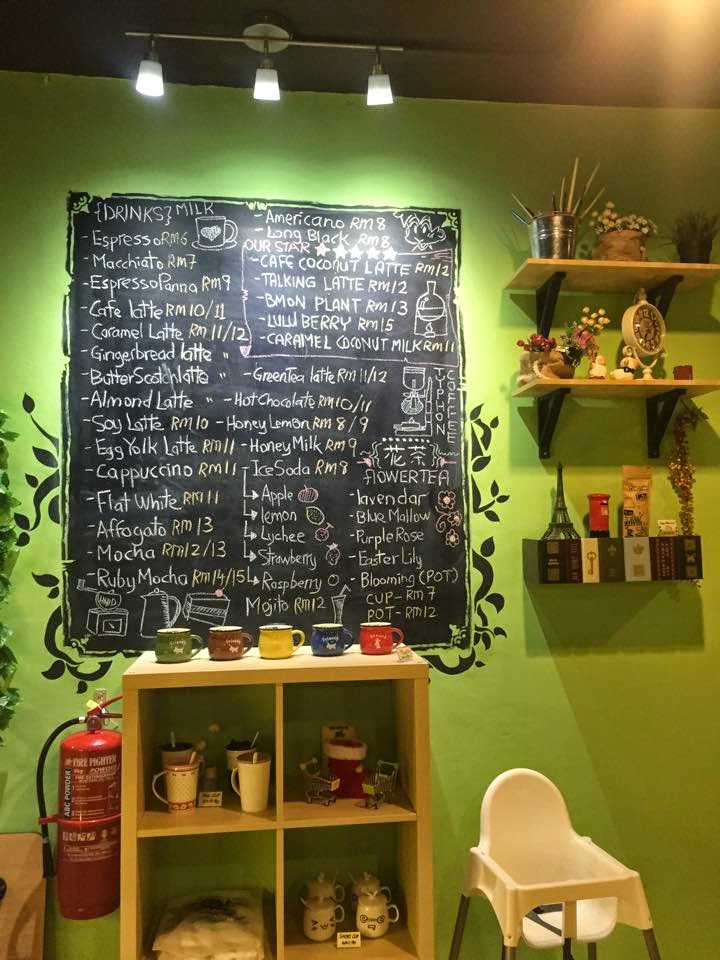 {DRINKS} MILK
- Espresso RM6
- Macchiato RM7
- EspressoPanna RM9
- Cafe latte RM10/11
- Caramel Latte RM11/12
- Gingerbread latte "
- ButterScotchlatte "
- Almond Latte "
- Soy Latte RM10
- Egg Yolk Latte RM11
- Cappuccino RM11
- Flat White RM11
- Affogato RM13
- Mocha RM12/13
- RubyMocha RM14/15
- Americano RM8
- Long Black RM8
OUR STAR
- CAFE COCONUT LATTE RM12
- TALKING LATTE RM12
- BMON PLANT RM13
- LULU BERRY RM15
- CARAMEL COCONUT MILK RM11
- GreenTea latte RM11/12
- HotChocolate RM10/11
- HoneyLemon RM8/9
- HoneyMilk RM9
- IceSoda RM8
Apple
lemon
Lychee
Strawberry
Raspberry
Mojito RM12
TYPHONE
COFFEE
花茶
FLOWERTEA
- lavendar
- Blue Mallow
- Purple Rose
- Easter Lily
- Blooming (POT)
CUP - RM7
POT - RM12
FIRE FIGHTER
ABC POWDER